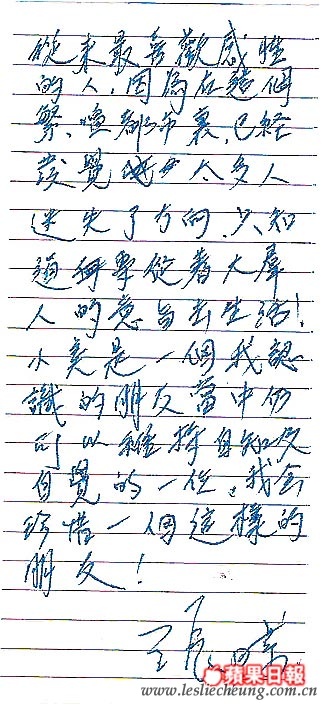 從來最喜歡感性
的人，因為在這個
繁、喧都市裏，已經
發覺太多人
迷失了方向，只知
道去從着大羣
人的意旨去生活！
小美是一個我認
識的朋友當中仍
可以維持自知及
自覺的一位，我會
珍惜一個這樣的
朋友！
蘋果日報
www.lesliecheung.com.cn